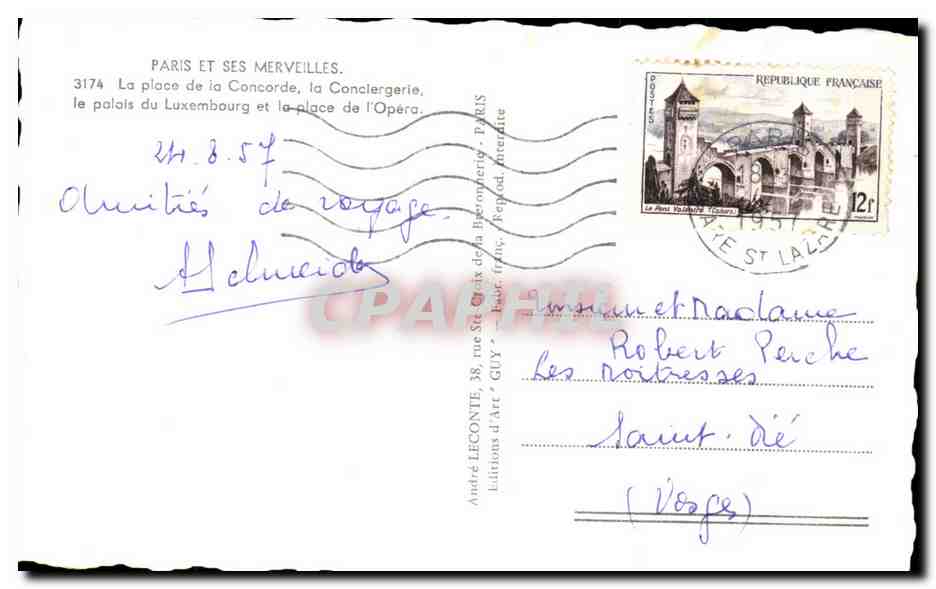 PARIS ET SES MERVEILLES.
3174 La place de la Concorde, la Conciergerie,
le palais du Luxembourg et la place de l'Opéra.
24.8.57
Amitiés de voyage.
André LECONTE, 38, rue Ste Croix de la Bretonnerie - PARIS
Editions d'Art "GUY" - Fabr. franç. Reprod. interdite
POSTES
REPUBLIQUE FRANÇAISE
Le Pont Valentré (Cahors)
12f
PARIS
1957
GARE ST LAZARE
CPARHIL
Monsieur et Madame
Robert Perche
Les Moitresses
Saint-Dié
(Vosges)